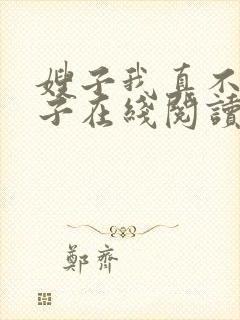 嫂子我真不
子在綫閱讀
鄭齊